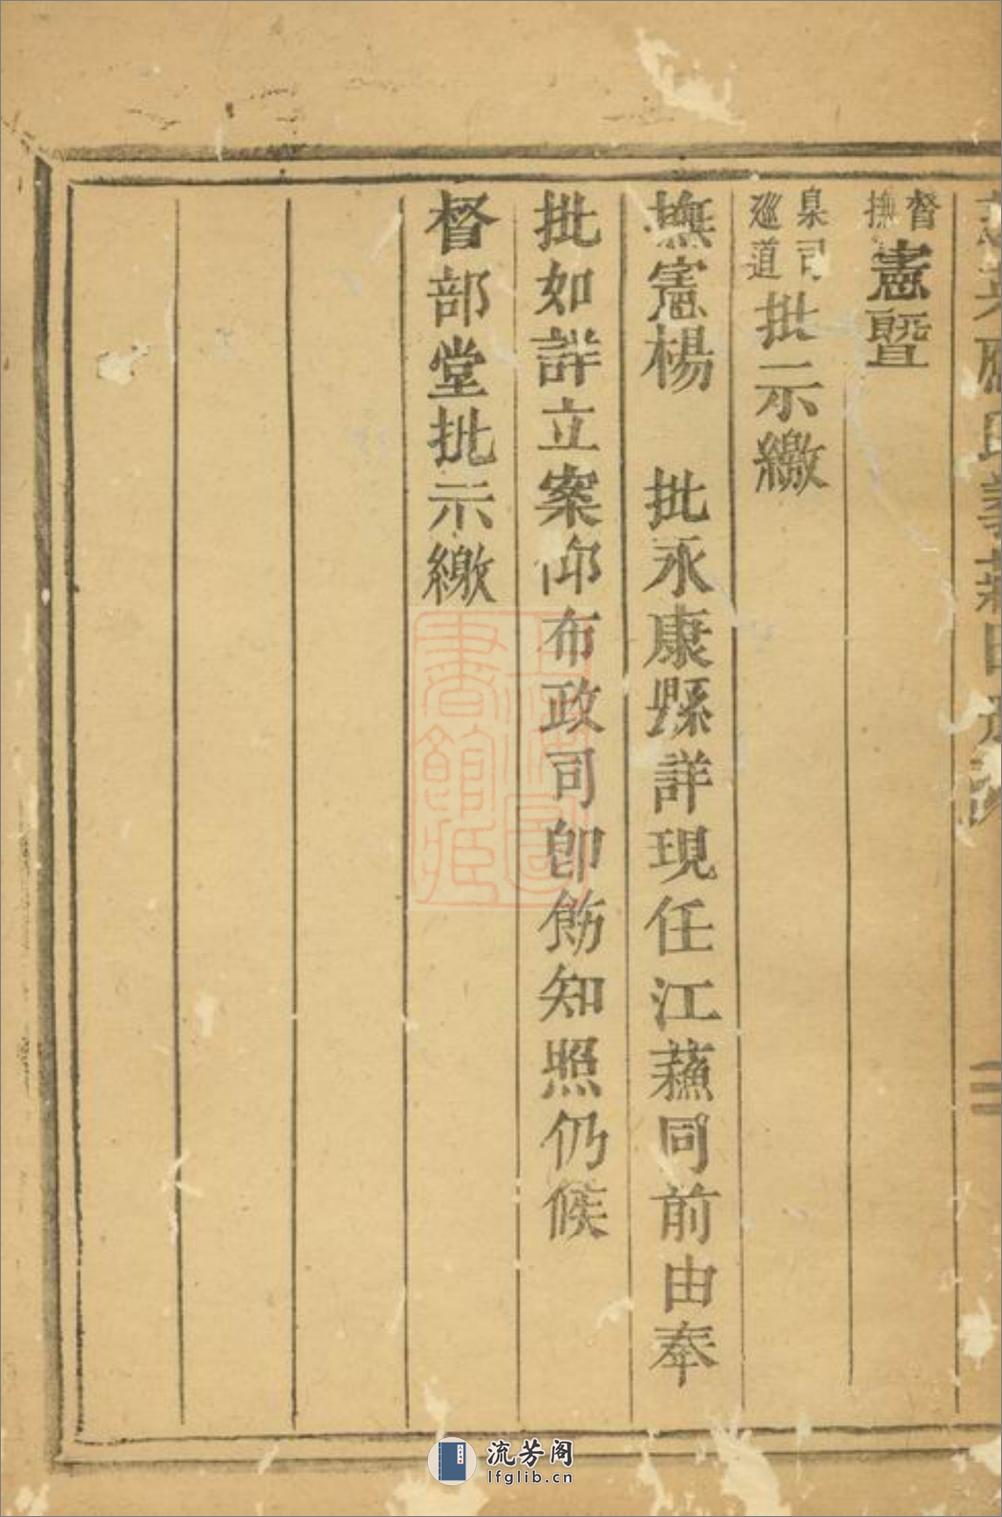 督撫憲曁
臬司巡道批示繳
撫憲楊 批永康縣詳現任江蘇同前由奉
批如詳立案仰布政司卽飭知照仍候
督部堂批示繳
流芳阁
lfglib.cn